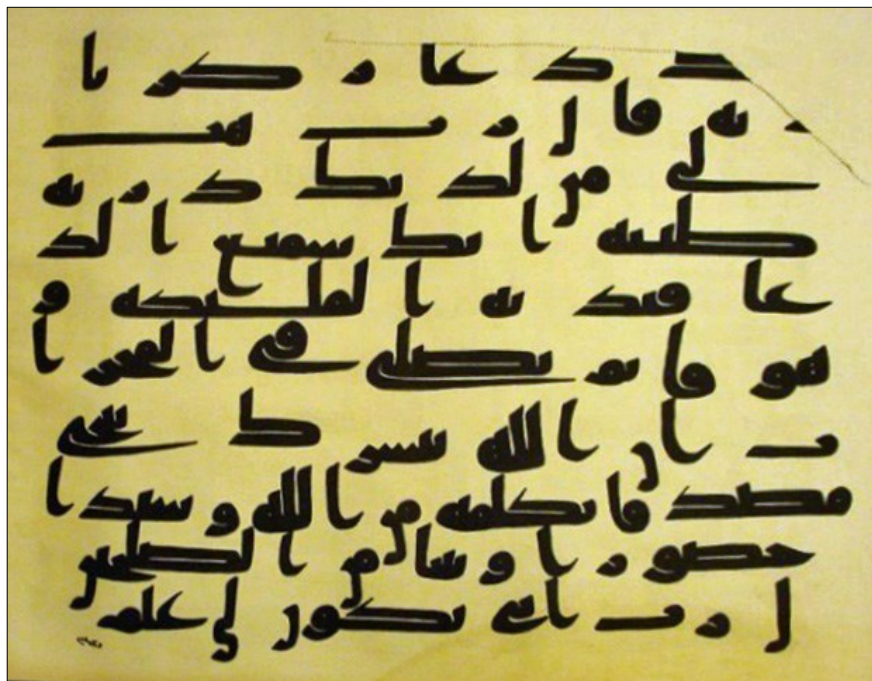 لك دعا زكريا
ربه قال رب هب
لي من لدنك ذرية
طيبه انك سميع الد
عا فندته الملئكه و
هو قائم يصلي في المحرا
ب ان الله يبشرك بيحيى
مصدقا بكلمه من الله وسيدا
حصورا و نبيا من الصلحين
ل رب انى يكون لي غلم